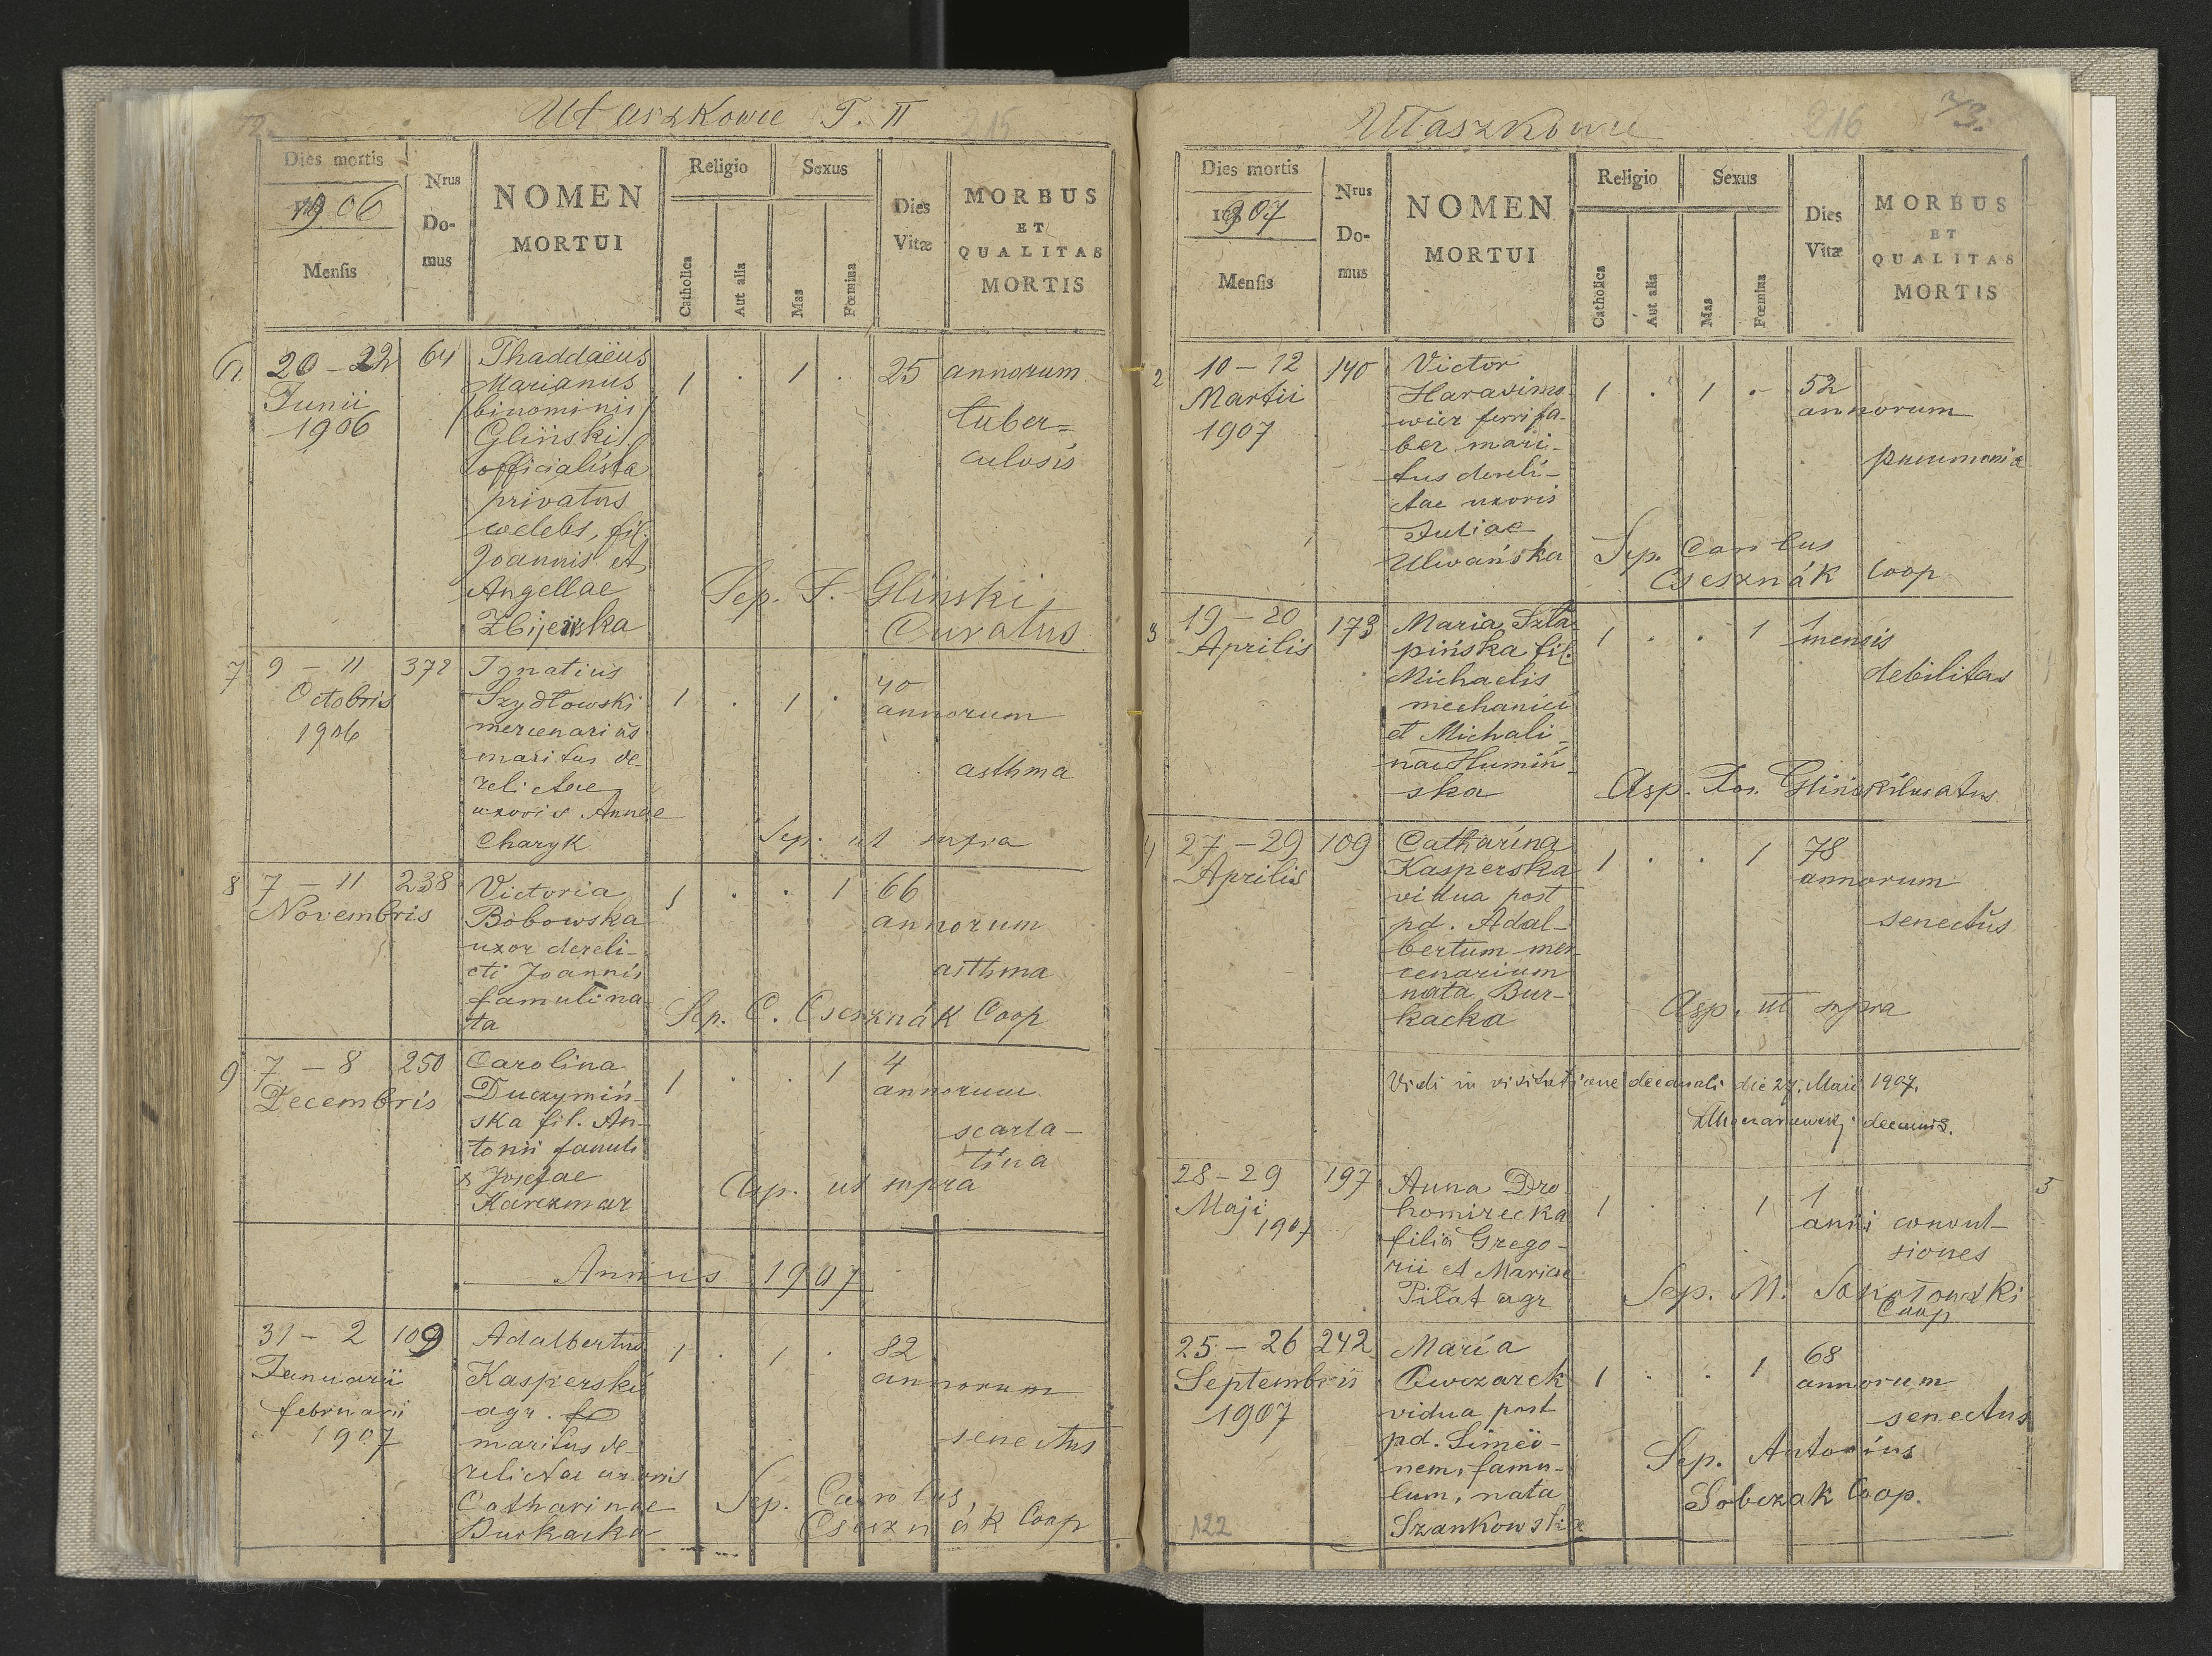 Ułaszkowce T. II 215
Dies mortis
1906
Mensis
Nrus
Do-
mus
NOMEN
MORTUI
Religio
Catholica
Aut alia
Sexus
Mas
Fœmina
Dies
Vitæ
MORBUS
ET
QUALITAS
MORTIS
6 20 – 22 64 Thaddaeus
Junii Marianus 1 . 1 . 25 annorum
1906 /binominis/
Gliński tuber=
officialista culosis
privatus
coelebs, fil.
Joannis et
Angellae Sep. F. Gliński
Zbijewska Curatus
7 9 – 11 372 Ignatius
Octobris Szydłowski 1 . 1 . 40
1906 mercenarius annorum
maritus de-
relictae asthma
uxoris Annae
Charyk Sep. ut supra
8 7 – 11 238 Victoria 1 . . 1 66
Novembris Bobowska annorum
uxor dereli-
cti Joannis asthma
famuli na-
ta Sep. C. Csesznák Coop
9 7 – 8 250 Carolina 1 . . 1 4
Decembris Duczymiń- annorum
ska fil. An-
tonii famuli scarla-
& Josefae tina
Karczmar Asp. ut supra
Annus 1907
31 – 2 109 Adalbertus 1 . 1 . 82
Januarii Kasperski annorum
februarii agr.
1907 maritus de- senectus
relictae uxoris
Catharinae Sep. Carolus
Burkacka Csesznák Coop
Ułaszkowce 216 73.
Dies mortis
1907
Mensis
Nrus
Do-
mus
NOMEN
MORTUI
Religio
Catholica
Aut alia
Sexus
Mas
Fœmina
Dies
Vitæ
MORBUS
ET
QUALITAS
MORTIS
2 10 – 12 140 Victor
Martii Harasimo- 1 . 1 . 52
1907 wicz ferrifa- annorum
ber mari-
tus dereli- pneumonia
ctae uxoris
Juliae
Ulwańska Sep. Carolus
Csesznák Coop
3 19 – 20 173 Maria Szta- 1 . . 1 1
Aprilis pińska fil. mensis
Michaelis debilitas
mechanici
et Michali-
nae Humiń-
ska Asp. Fr. Gliński Curatus
4 27 – 29 109 Catharina 1 . . 1 78
Aprilis Kasperska annorum
vidua post
pd. Adal- senectus
bertum mer-
cenarium
nata Bur-
kacka Asp. ut supra
Vidi in visitatione decanali die 27. Maii 1907.
decanus.
28 – 29 197 Anna Dro- 5
Maji homirecka 1 . . 1 1
1907 filia Grego- anni convul-
rii et Mariae siones
Piłat agr Sep. M. Sokołowski
Coop
25 – 26 242 Maria
Septembris Owczarek 1 . . 1 68
1907 vidua post annorum
pd. Simeo- senectus
nem, famu- Sep. Antonius
lum, nata Sobczak Coop.
Szankowska
122